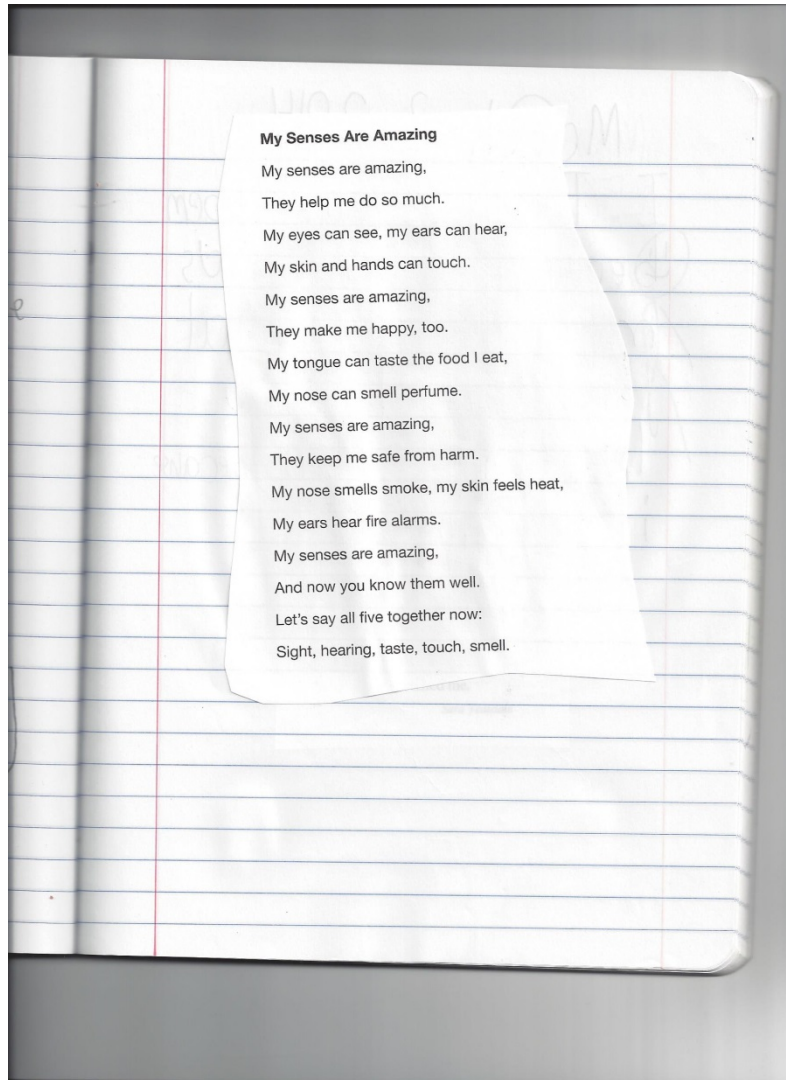 My Senses Are Amazing
My senses are amazing,
They help me do so much.
My eyes can see, my ears can hear,
My skin and hands can touch.
My senses are amazing,
They make me happy, too.
My tongue can taste the food I eat,
My nose can smell perfume.
My senses are amazing,
They keep me safe from harm.
My nose smells smoke, my skin feels heat,
My ears hear fire alarms.
My senses are amazing,
And now you know them well.
Let's say all five together now:
Sight, hearing, taste, touch, smell.